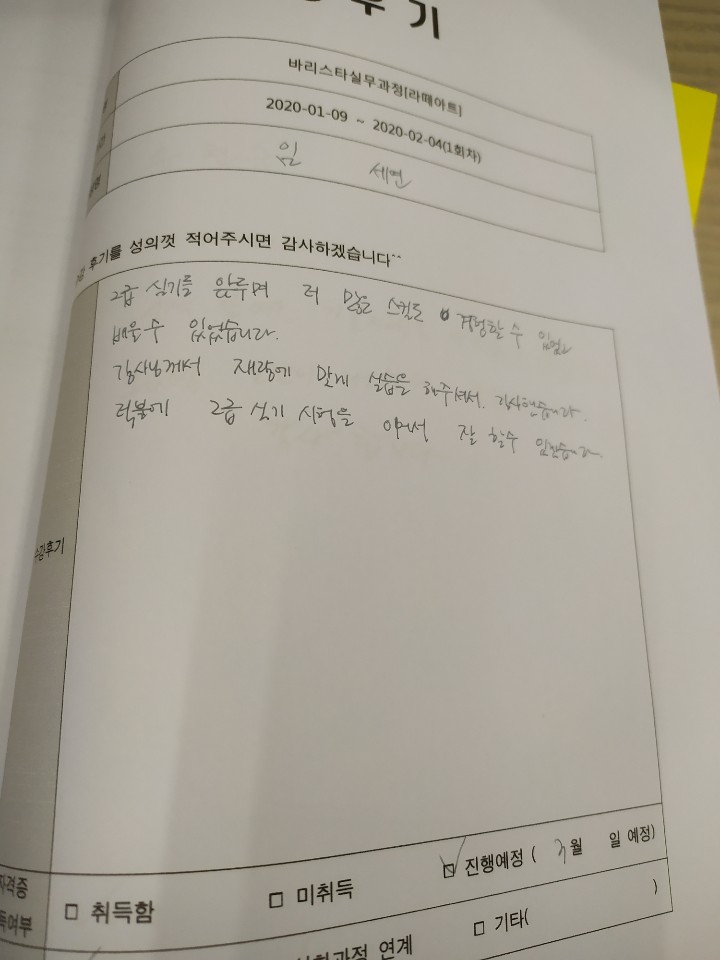 후기
바리스타실무과정[라떼아트]
2020-01-09 ~ 2020-02-04(1회차)
임 세연
후기를 성의껏 적어주시면 감사하겠습니다^^
2급 실기를 앞두며 더 많은 스킬도 경험할 수 있었고
배울 수 있었습니다.
강사님께서 재량에 맞게 실습을 해주셔서 감사했습니다.
덕분에 2급 실기 시험을 잘 할수 있었습니다.
수강후기
자격증
득여부
□ 취득함 □ 미취득 ☑ 진행예정 ( 3월 일 예정)
과정 연계 □ 기타( )